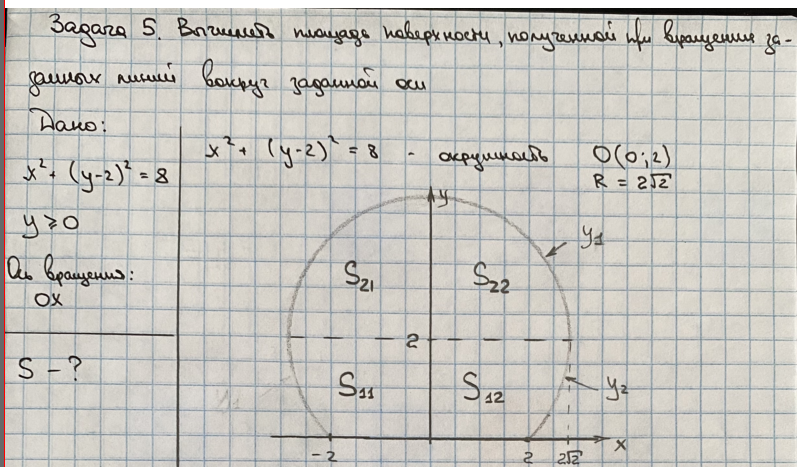 Задача 5. Вычислить площадь поверхности, полученной при вращении за-
данных линий вокруг заданной оси
Дано:
x² + (y-2)² = 8
y ⩾ 0
Ось вращения:
OX
S - ?
x² + (y-2)² = 8 - окружность O(0;2)
R = 2√2
y
y₁
S₂₁ S₂₂
2
S₁₁ S₁₂
y₂
-2 2 2√2 x